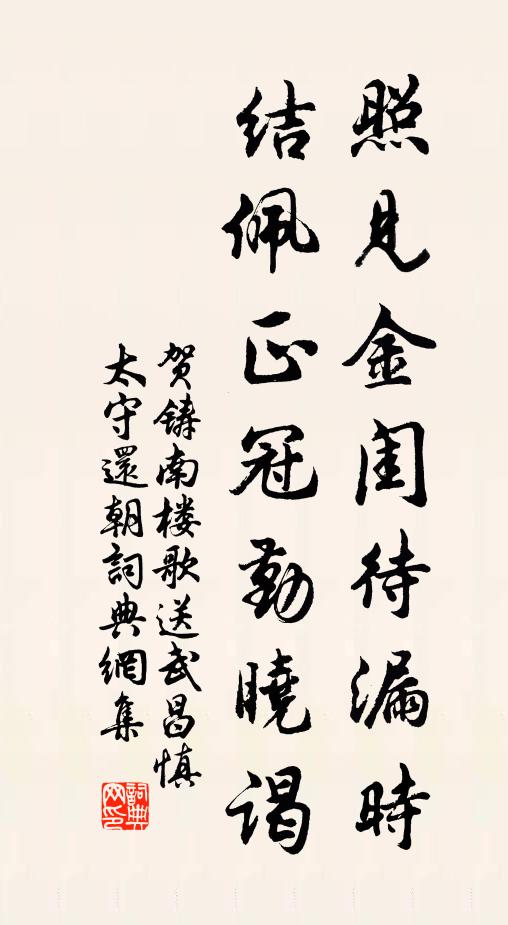 照見金閨待漏時
結佩正冠勤曉謁
贺鑄南楼歌送武昌慎
太守還朝詞典網集
詞典网印